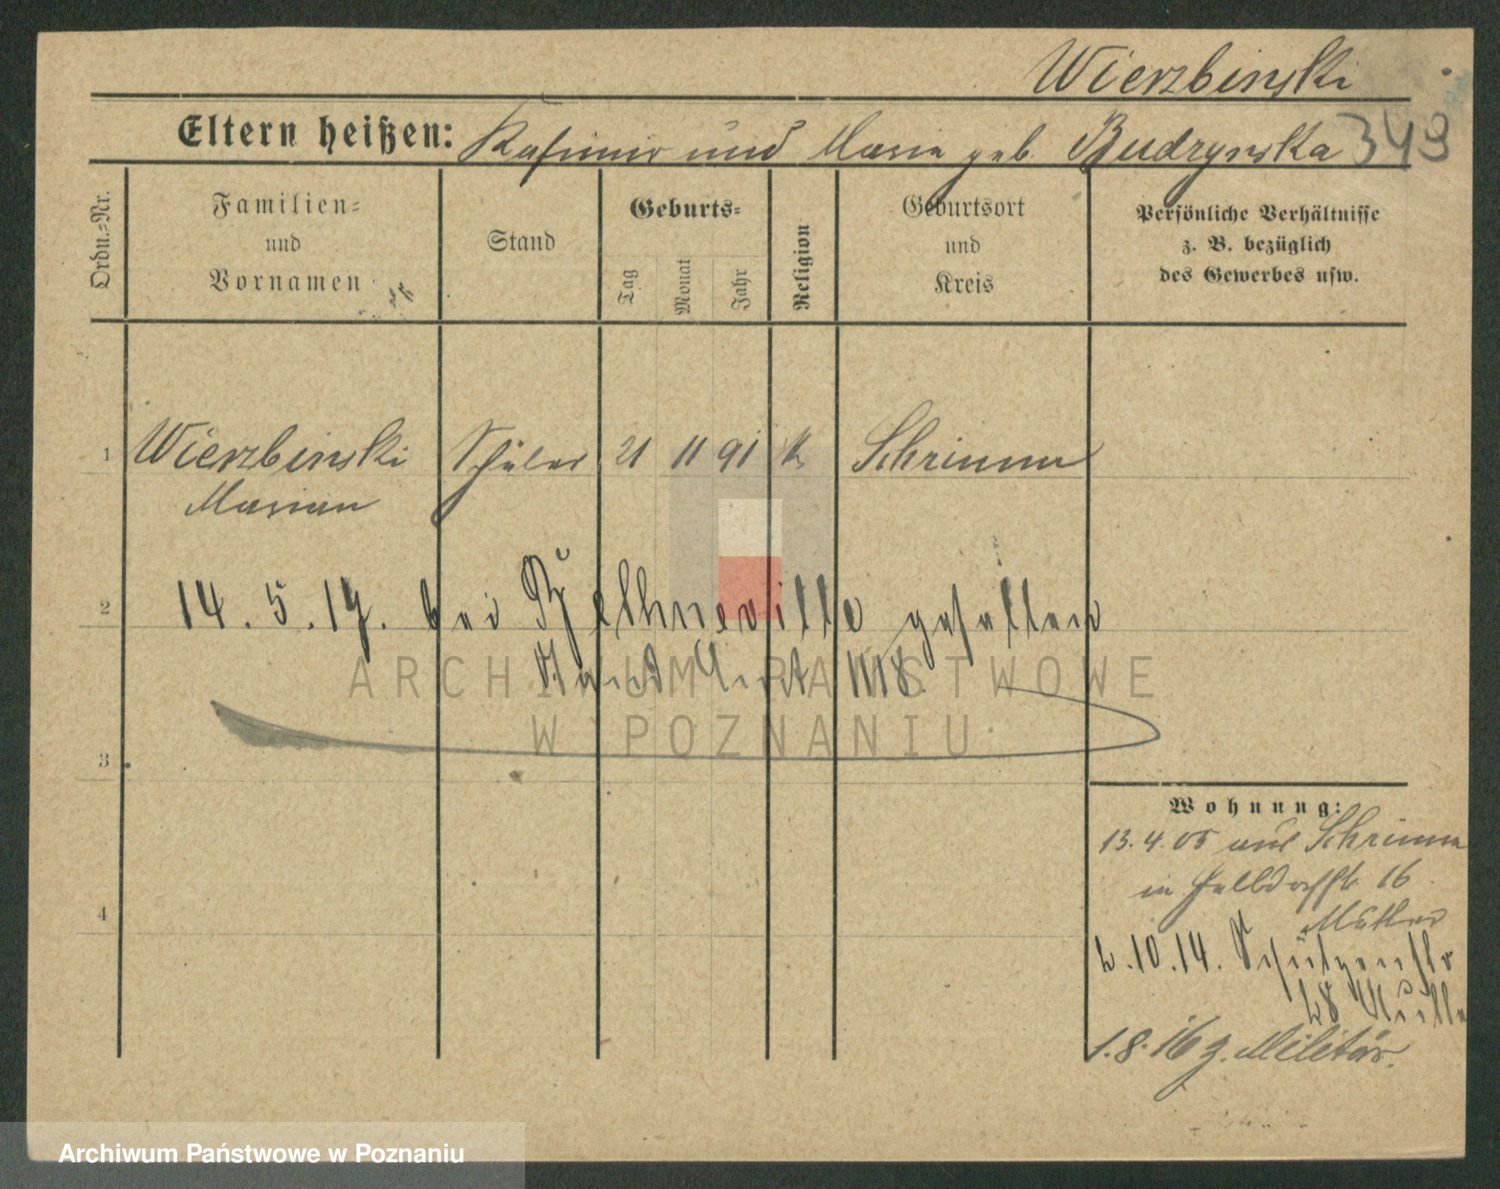 Wierzbinski
Eltern heißen: Kasimir und Maria geb. Budzynska 349
Ordn.=Nr.
Familien=
und
Vornamen
Stand
Geburts=
Tag
Monat
Jahr
Religion
Geburtsort
und
Kreis
Persönliche Verhältnisse
z. B. bezüglich
des Gewerbes usw.
1 Wierzbinski Schüler 21 11 91 k Schrimm
Marian
2 14. 5. 17. bei gefallen
1118.
ARCHIWUM PAŃSTWOWE
W POZNANIU
3
Wohnung:
13. 4. 05 aus Schrimm
in 16
4 Mutter
2. 10. 14. Schützenstr
28 Mutter
1. 8. 16 z. Militär.
Archiwum Państwowe w Poznaniu